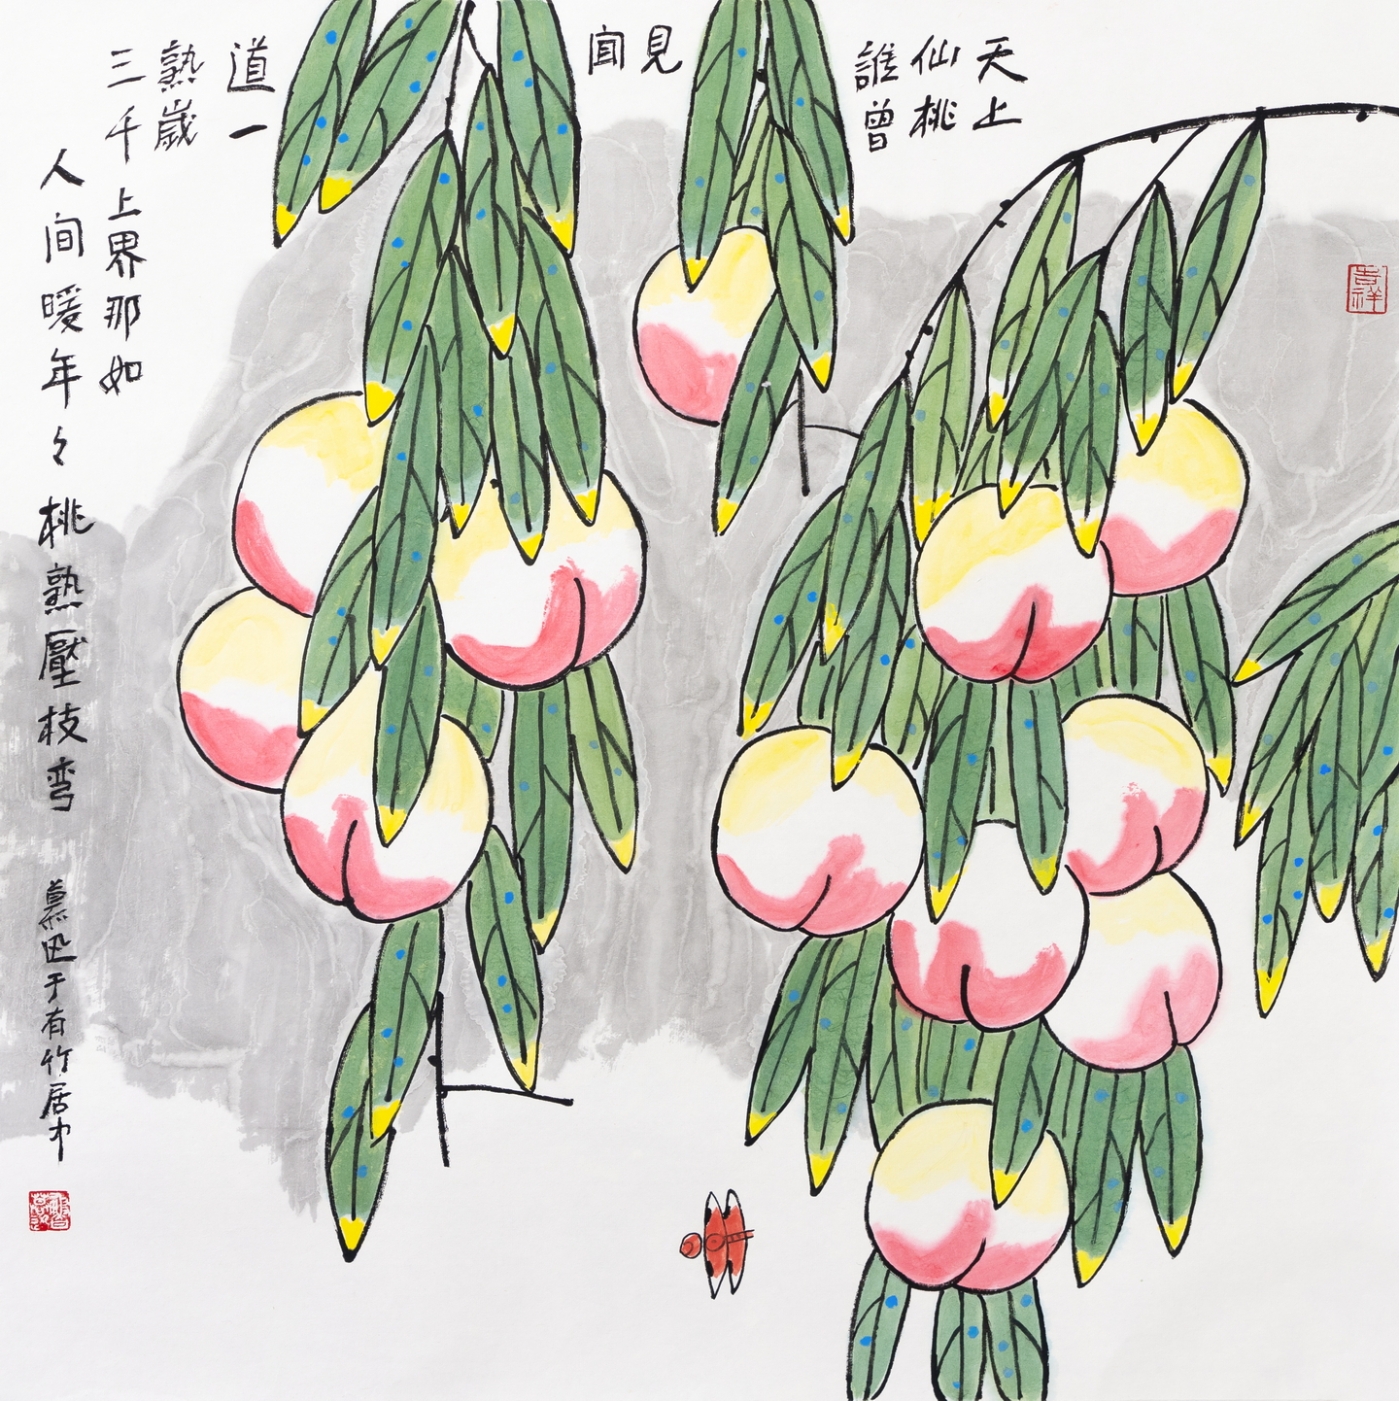 天上
仙桃
誰曾
見
聞
道一
熟歲
三千上界那如
人间暖年々桃熟壓枝弯
慕迅于有竹居中
吉祥